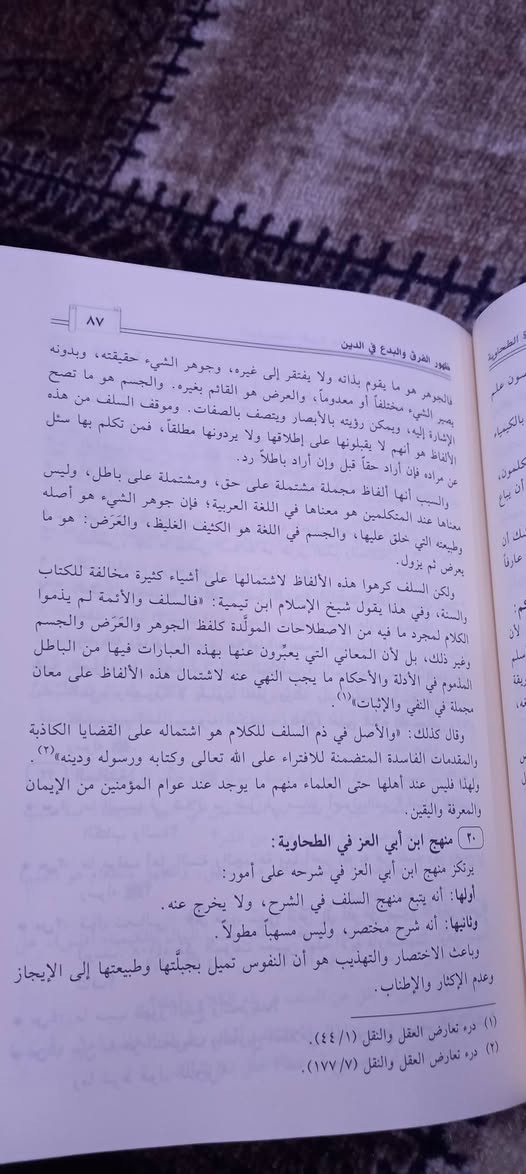 ظهور الفرق والبدع في الدين
٨٧
فالجوهر هو ما يقوم بذاته ولا يفتقر إلى غيره، وجوهر الشيء حقيقته، وبدونه
يصير الشيء مختلفاً أو معدوماً، والعرض هو القائم بغيره. والجسم هو ما تصح
الإشارة إليه، ويمكن رؤيته بالأبصار ويتصف بالصفات. وموقف السلف من هذه
الألفاظ هو أنهم لا يقبلونها على إطلاقها ولا يردونها مطلقاً، فمن تكلم بها سئل
عن مراده فإن أراد حقاً قبل وإن أراد باطلاً رد.
والسبب أنها ألفاظ مجملة مشتملة على حق، ومشتملة على باطل، وليس
معناها عند المتكلمين هو معناها في اللغة العربية؛ فإن جوهر الشيء هو أصله
وطبيعته التي خلق عليها، والجسم في اللغة هو الكثيف الغليظ، والعَرَض: هو ما
يعرض ثم يزول.
ولكن السلف كرهوا هذه الألفاظ لاشتمالها على أشياء كثيرة مخالفة للكتاب
والسنة، وفي هذا يقول شيخ الإسلام ابن تيمية: «فالسلف والأئمة لم يذموا
الكلام لمجرد ما فيه من الاصطلاحات المولَّدة كلفظ الجوهر والعَرَض والجسم
وغير ذلك، بل لأن المعاني التي يعبِّرون عنها بهذه العبارات فيها من الباطل
المذموم في الأدلة والأحكام ما يجب النهي عنه لاشتمال هذه الألفاظ على معان
مجملة في النفي والإثبات»(١).
وقال كذلك: «والأصل في ذم السلف للكلام هو اشتماله على القضايا الكاذبة
والمقدمات الفاسدة المتضمنة للافتراء على الله تعالى وكتابه ورسوله ودينه»(٢).
ولهذا فليس عند أهلها حتى العلماء منهم ما يوجد عند عوام المؤمنين من الإيمان
والمعرفة واليقين.
٢٠ منهج ابن أبي العز في الطحاوية:
يرتكز منهج ابن أبي العز في شرحه على أمور:
أولها: أنه يتبع منهج السلف في الشرح، ولا يخرج عنه.
وثانيها: أنه شرح مختصر، وليس مسهباً مطولاً.
وباعث الاختصار والتهذيب هو أن النفوس تميل بجبلَّتها وطبيعتها إلى الإيجاز
وعدم الإكثار والإطناب.
(١) درء تعارض العقل والنقل (٤٤/١).
(٢) درء تعارض العقل والنقل (١٧٧/٧).